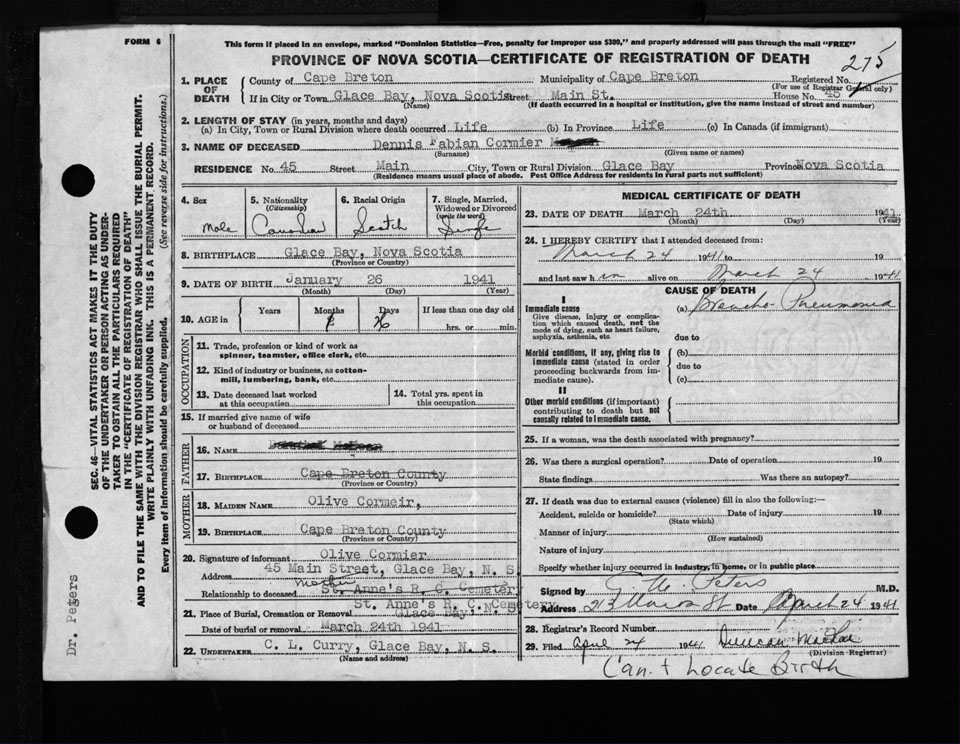 FORM 6
This form if placed in an envelope, marked "Dominion Statistics—Free, penalty for improper use $300," and properly addressed will pass through the mail "FREE"
PROVINCE OF NOVA SCOTIA—CERTIFICATE OF REGISTRATION OF DEATH
275
1. PLACE OF DEATH County of Cape Breton Municipality of Cape Breton Registered No.
(For use of Registrar General only)
If in City or Town Glace Bay, Nova Scotia Street Main St. House No. 45
(Name) (If death occurred in a hospital or institution, give the name instead of street and number)
2. LENGTH OF STAY (in years, months and days)
(a) In City, Town or Rural Division where death occurred Life (b) In Province Life (c) In Canada (if immigrant)
3. NAME OF DECEASED Dennis Fabian Cormier
(Surname) (Given name or names)
RESIDENCE No. 45 Street Main City, Town or Rural Division Glace Bay Province Nova Scotia
(Residence means usual place of abode. Post Office Address for residents in rural parts not sufficient)
4. Sex 5. Nationality (Citizenship) 6. Racial Origin 7. Single, Married, Widowed or Divorced (write the word)
Male Canadian Scotch Single
8. BIRTHPLACE Glace Bay, Nova Scotia
(Province or Country)
9. DATE OF BIRTH January 26 1941
(Month) (Day) (Year)
10. AGE in Years Months Days If less than one day old
hrs. or min.
OCCUPATION
11. Trade, profession or kind of work as spinner, teamster, office clerk, etc.
12. Kind of industry or business, as cotton-mill, lumbering, bank, etc.
13. Date deceased last worked at this occupation
14. Total yrs. spent in this occupation
15. If married give name of wife or husband of deceased
FATHER
16. NAME
17. BIRTHPLACE Cape Breton County
(Province or Country)
MOTHER
18. MAIDEN NAME Olive Cormeir,
19. BIRTHPLACE Cape Breton County
(Province or Country)
20. Signature of informant Olive Cormier
Address 45 Main Street, Glace Bay, N. S.
Relationship to deceased Mother St. Anne's R. C. Cemetery
21. Place of Burial, Cremation or Removal St. Anne's R. C. Cemetery Glace Bay, N. S.
Date of burial or removal March 24th 1941
22. UNDERTAKER C. L. Curry, Glace Bay, N. S.
(Name and address)
MEDICAL CERTIFICATE OF DEATH
23. DATE OF DEATH March 24th 1941
(Month) (Day) (Year)
24. I HEREBY CERTIFY that I attended deceased from:
March 24 1941 to 19
and last saw h im alive on March 24 1941
CAUSE OF DEATH
I
Immediate cause (a) Broncho-Pneumonia
Give disease, injury or complication which caused death, not the mode of dying, such as heart failure, asphyxia, asthenia, etc.
due to
Morbid conditions, if any, giving rise to immediate cause (stated in order proceeding backwards from immediate cause).
(b)
due to
(c)
II
Other morbid conditions (if important) contributing to death but not causally related to immediate cause.
25. If a woman, was the death associated with pregnancy?
26. Was there a surgical operation? Date of operation 19
State findings Was there an autopsy?
27. If death was due to external causes (violence) fill in also the following:—
Accident, suicide or homicide? Date of injury 19
(State which)
Manner of injury
(How sustained)
Nature of injury
Specify whether injury occurred in industry, in home, or in public place
Signed by Peters M.D.
Address 213 Main St Date March 24 1941
28. Registrar's Record Number
29. Filed April 24 1941 Duncan
(Division Registrar)
Can't Locate Birth
SEC. 46—VITAL STATISTICS ACT MAKES IT THE DUTY
OF THE UNDERTAKER OR PERSON ACTING AS UNDER-
TAKER TO OBTAIN ALL THE PARTICULARS REQUIRED
IN THE "CERTIFICATE OF REGISTRATION OF DEATH"
AND TO FILE THE SAME WITH THE DIVISION REGISTRAR WHO SHALL ISSUE THE BURIAL PERMIT.
WRITE PLAINLY WITH UNFADING INK. THIS IS A PERMANENT RECORD.
Every item of information should be carefully supplied. (See reverse side for instructions.)
Dr. Peters